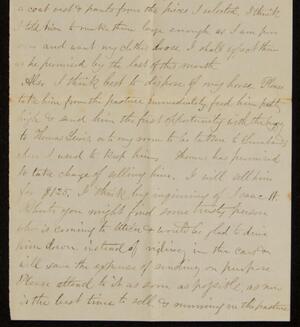 a coat vest & pants from the pieces I selected. I think
I told him to make them large enough as I am
now and want my clothes loose. I shall expect them
as he promised by the last of this month.
Also, I think best to dispose of my horse. Please
take him from the pasture immediately, feed him pretty
high & send him the first opportunity with the buggy
to Thomas Lewis, or to my room to be taken to
where I used to keep him. Thomas has promised
to take charge of selling him. I will sell him
for $125. I think by inquiring of Isaac W.
you might find some trusty person
who is coming to Utica & would be glad to drive
him down instead of riding in the cars &
will save the expense of sending on purpose
Please attend to it as soon as possible, as now
is the best time to sell & running in the pasture